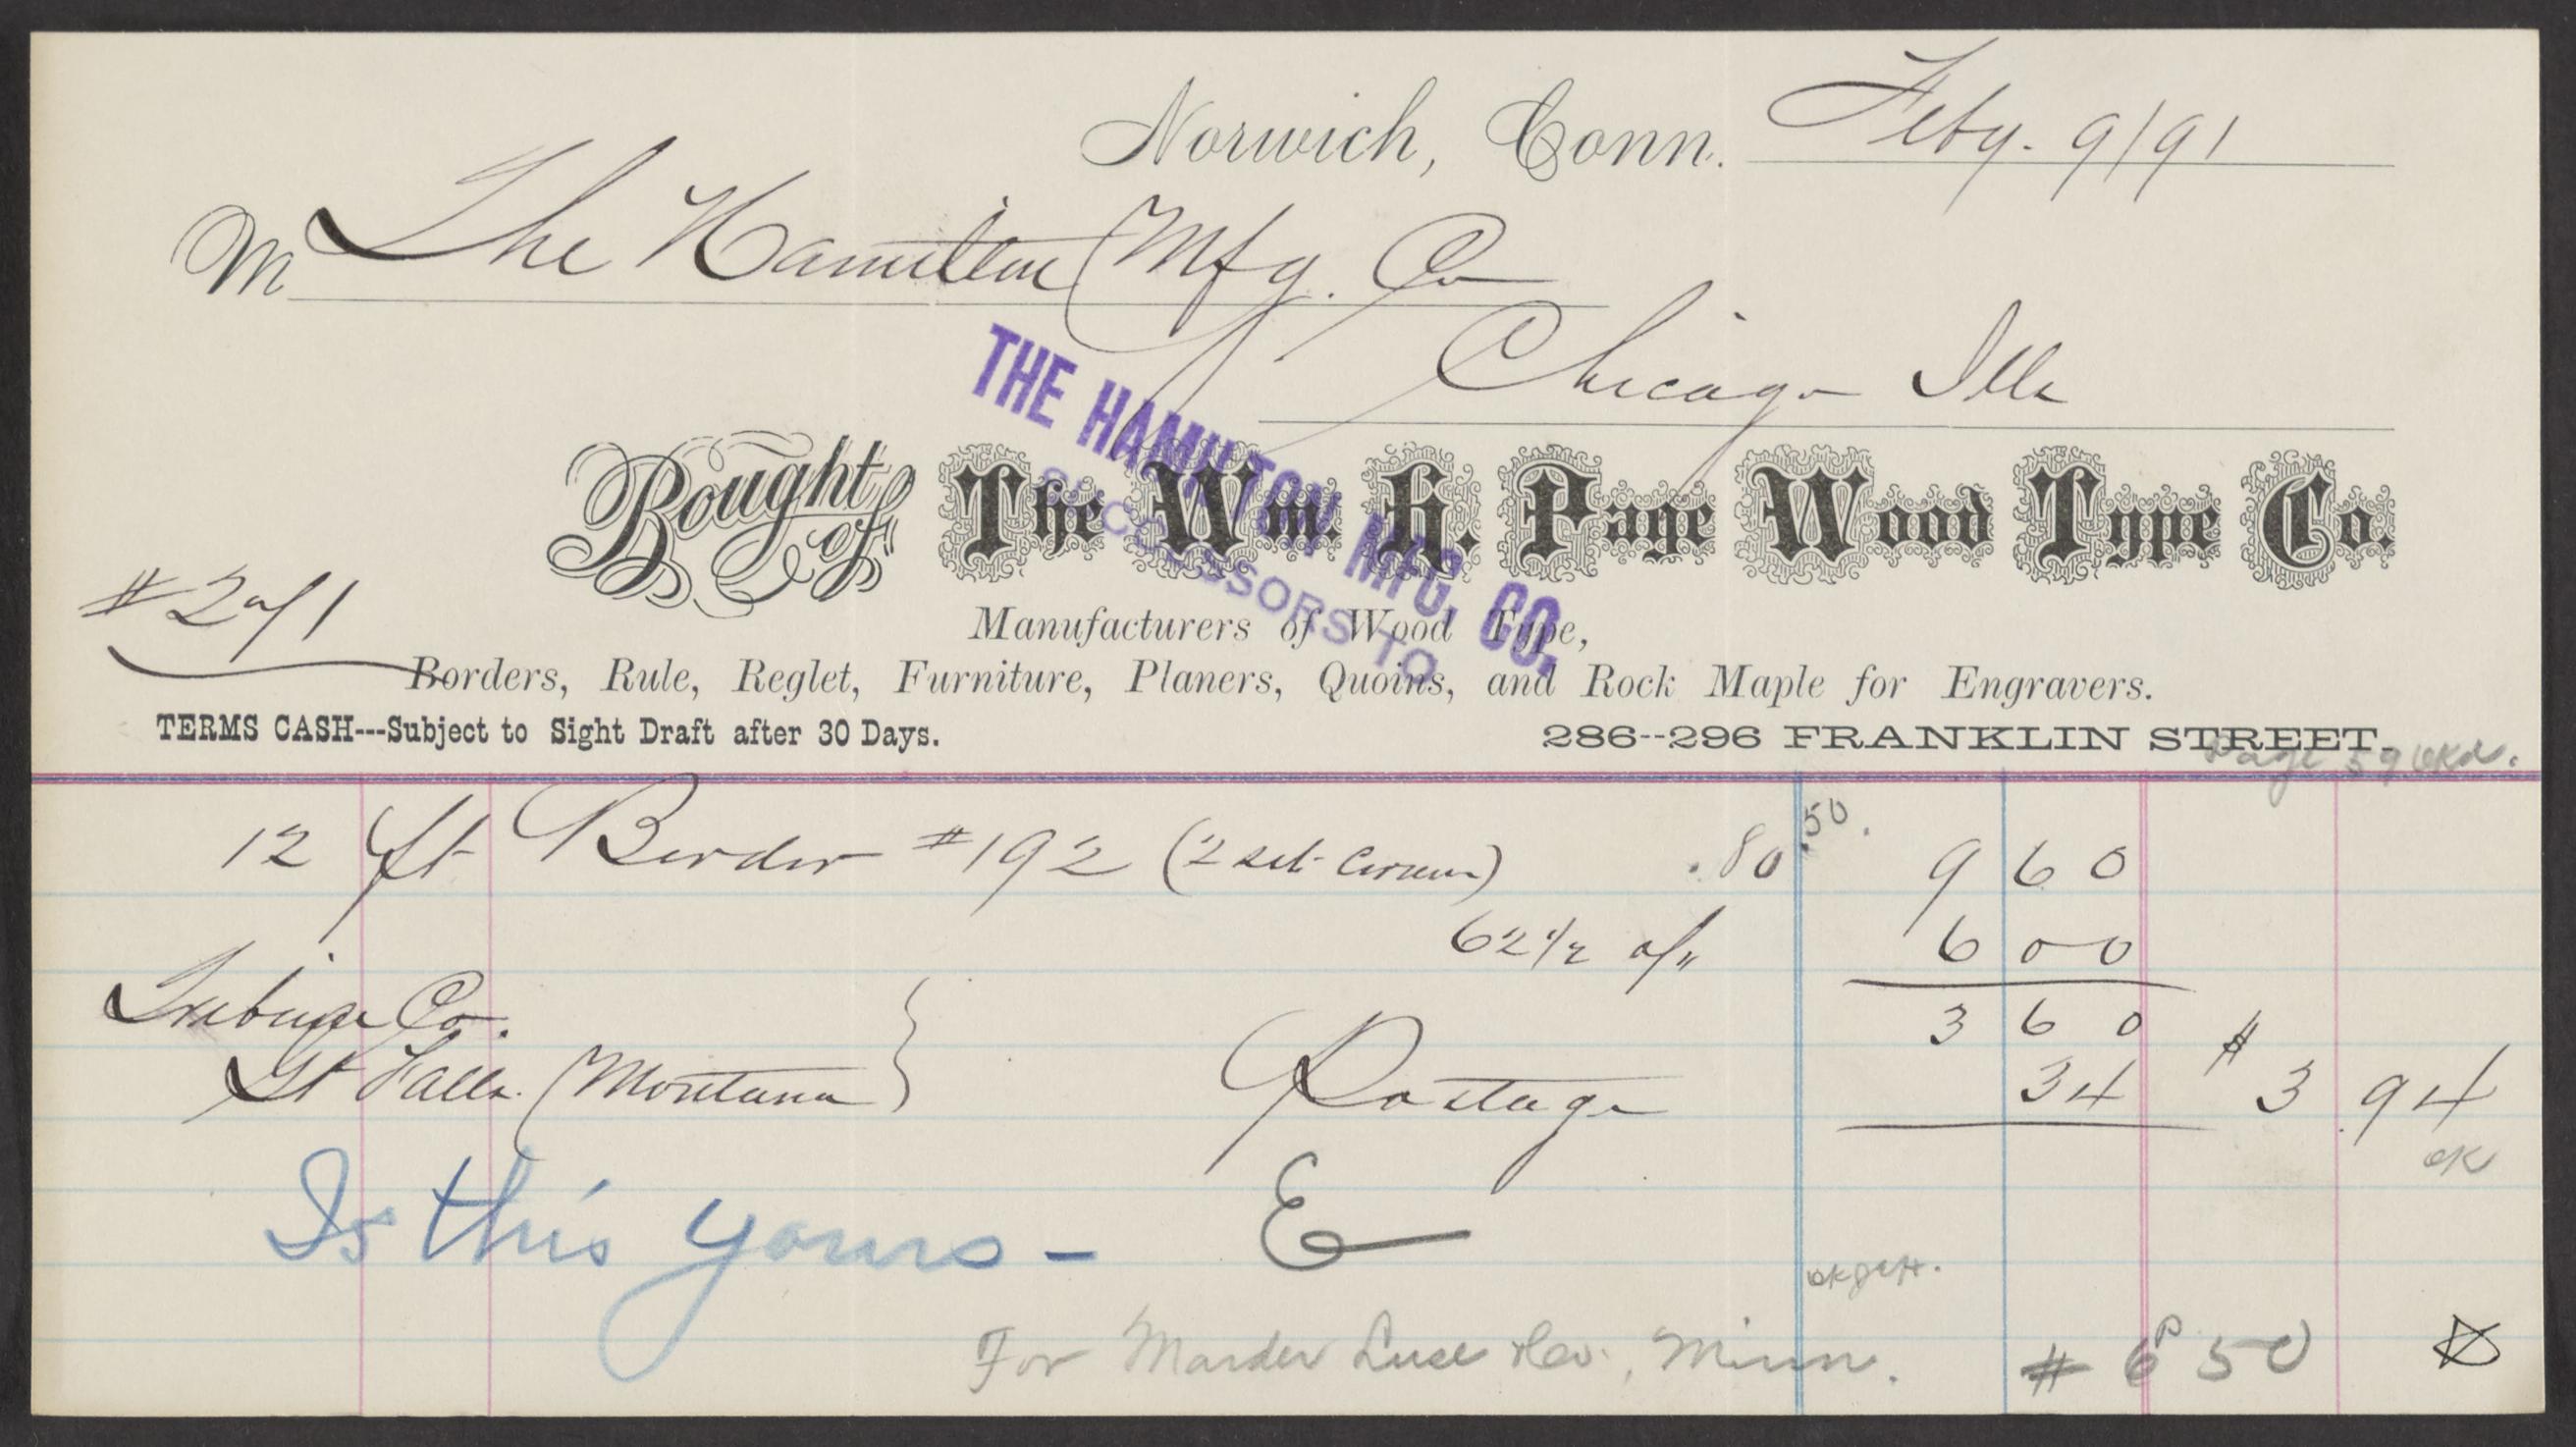 Norwich, Conn. Feby. 9/91
M The Hamilton Mfg. Co
Chicago Ills
THE HAMILTON MFG. CO.
SUCCESSORS TO
Bought of The Wm. H. Page Wood Type Co.
Manufacturers of Wood Type,
Borders, Rule, Reglet, Furniture, Planers, Quoins, and Rock Maple for Engravers.
TERMS CASH---Subject to Sight Draft after 30 Days.
286--296 FRANKLIN STREET.
Page 59
12 ft Border #192 (2 sets Corners) .80 50. 9 60
62 1/2 6 00
3 60
Tribune Co.
Gt Falls. Montana } Postage 34 $ 3 94
OK
Is this yours - E
For Marder Luse &Co., Minn. # 6 50